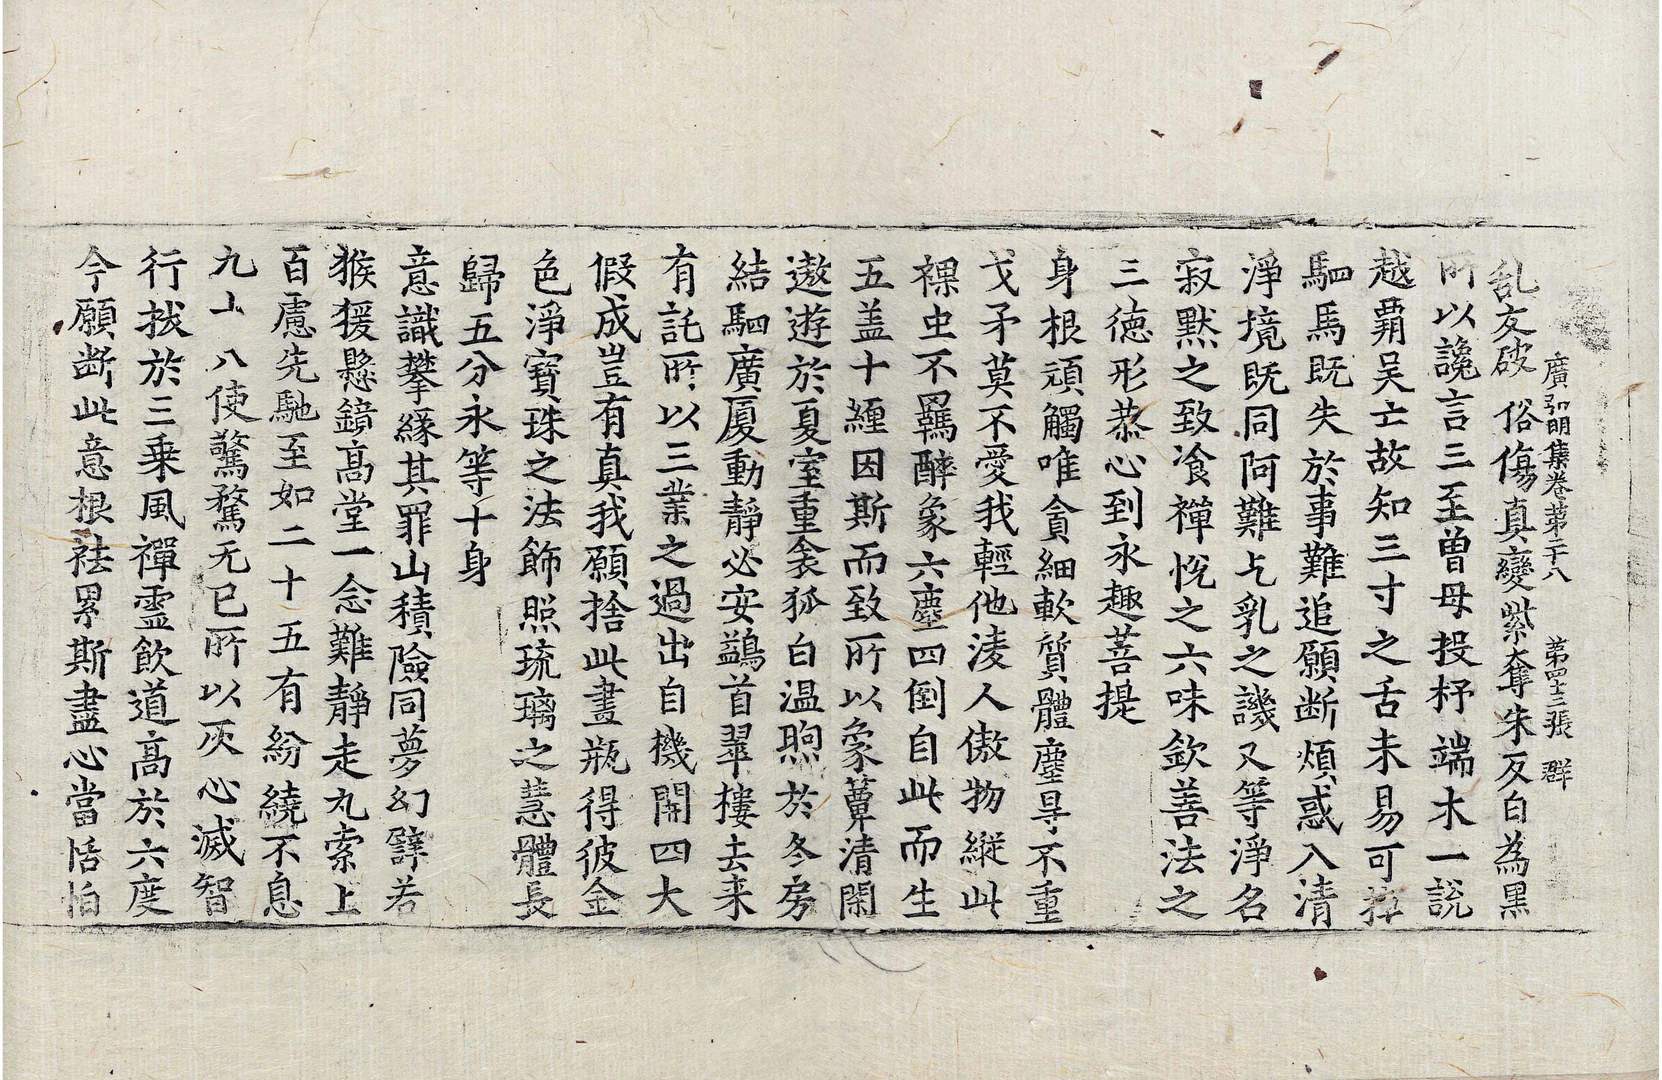 廣弘明集卷第二十八 第四十三張 群
乱友破俗傷真變紫奪朱反白為黑
所以讒言三至曽母投杼端木一說
越霸吴亡故知三寸之舌未易可掉
駟馬既失於事難追願断煩惑入清
淨境既同阿難乞乳之譏又等淨名
寂黙之致飡禪恱之六味欽善法之
三徳形恭心到永趣菩提
身根頑觸唯貪細軟質體塵㝵不重
戈矛莫不愛我輕他淩人傲物縱此
裸虫不羈醉象六塵四倒自此而生
五盖十纏因斯而致所以象簟清閑
遨遊於夏室重衾狐白温煦於冬房
結駟廣厦動靜必安鷁首翠樓去来
有託所以三業之過出自機關四大
假成豈有真我願捨此畫瓶得彼金
色淨寳珠之法飾照琉璃之慧體長
歸五分永等十身
意識攀緣其罪山積險同夢幻譬若
猴猨懸鏡髙堂一念難靜走丸索上
百慮先馳至如二十五有紛繞不息
九十八使驚騖无已所以灰心滅智
行拔於三乗風禪霊飲道髙於六度
今願断此意根祛累斯盡心當恬怕